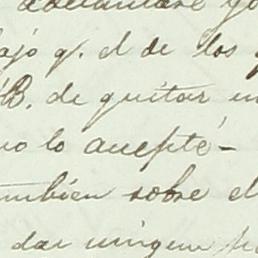 adelantare yo
ajo q. el de los
B. de quitar un
no lo acepté-
tambien sobre el
dar ningun